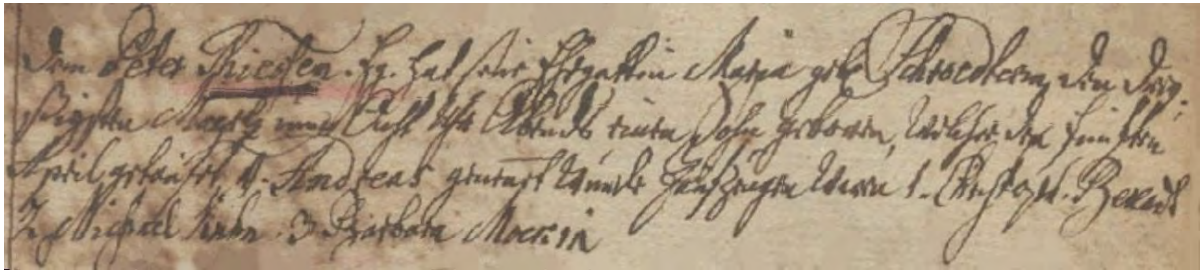 Dem Peter Thiessen. Hg. hat seine Ehegattin Maria geb. den drey-
ßigsten Maertz um Acht Uhr Abends einen Sohn geboren, welcher den fünften
April getauft u. Andreas genennt wurde Taufzeugen waren 1. Christoph.
2. Michael 3 Barbara